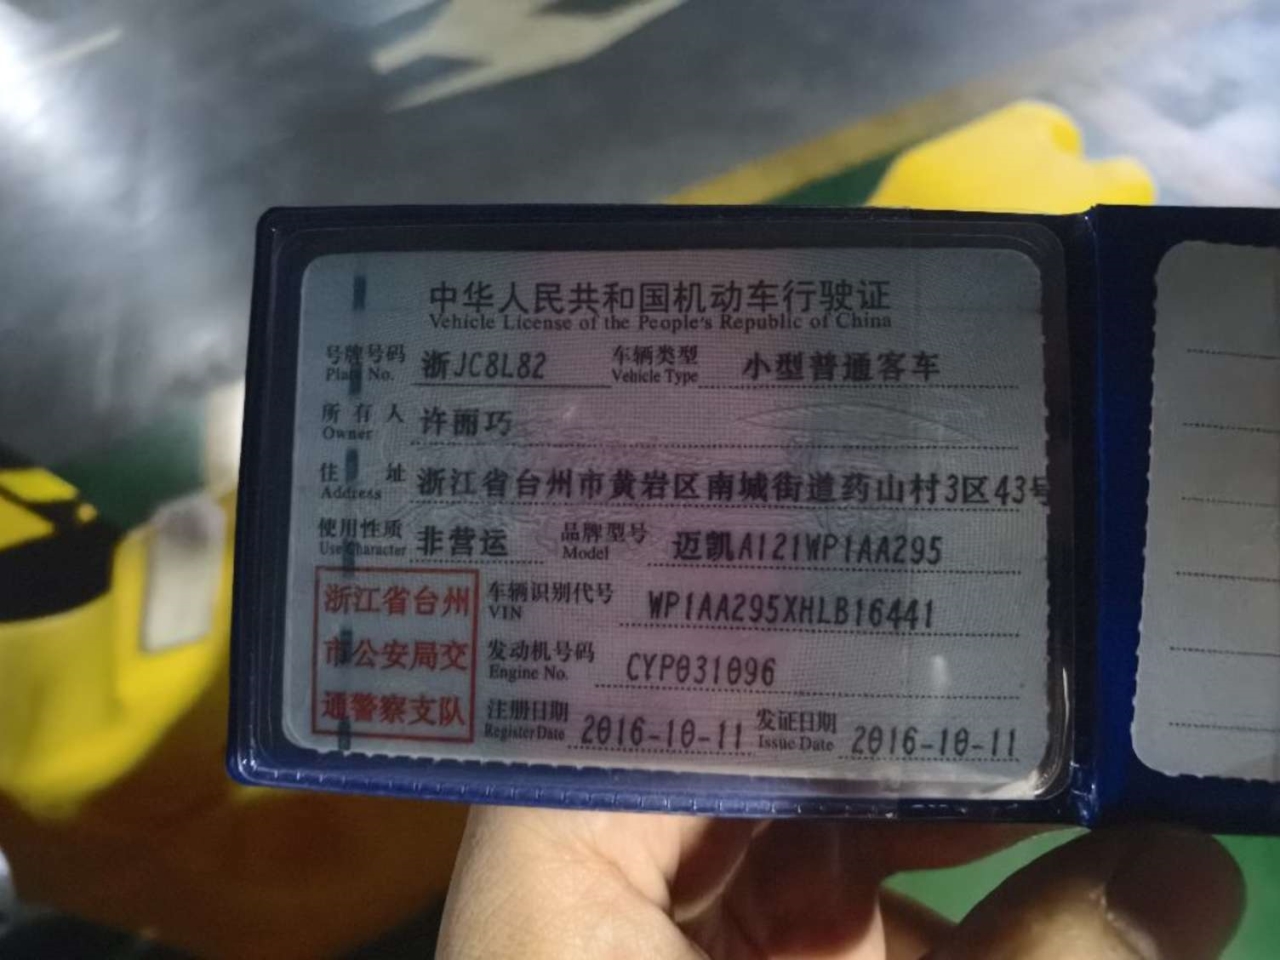 中华人民共和国机动车行驶证
Vehicle License of the People's Republic of China
号牌号码 浙JC8L82 车辆类型 小型普通客车
Plate No. Vehicle Type
所有人 许丽巧
Owner
住址 浙江省台州市黄岩区南城街道药山村3区43号
Address
使用性质 非营运 品牌型号 迈凯A121WP1AA295
Use Character Model
浙江省台州 车辆识别代号 WP1AA295XHLB16441
VIN
市公安局交 发动机号码 CYP031096
Engine No.
通警察支队 注册日期 2016-10-11 发证日期 2016-10-11
Register Date Issue Date